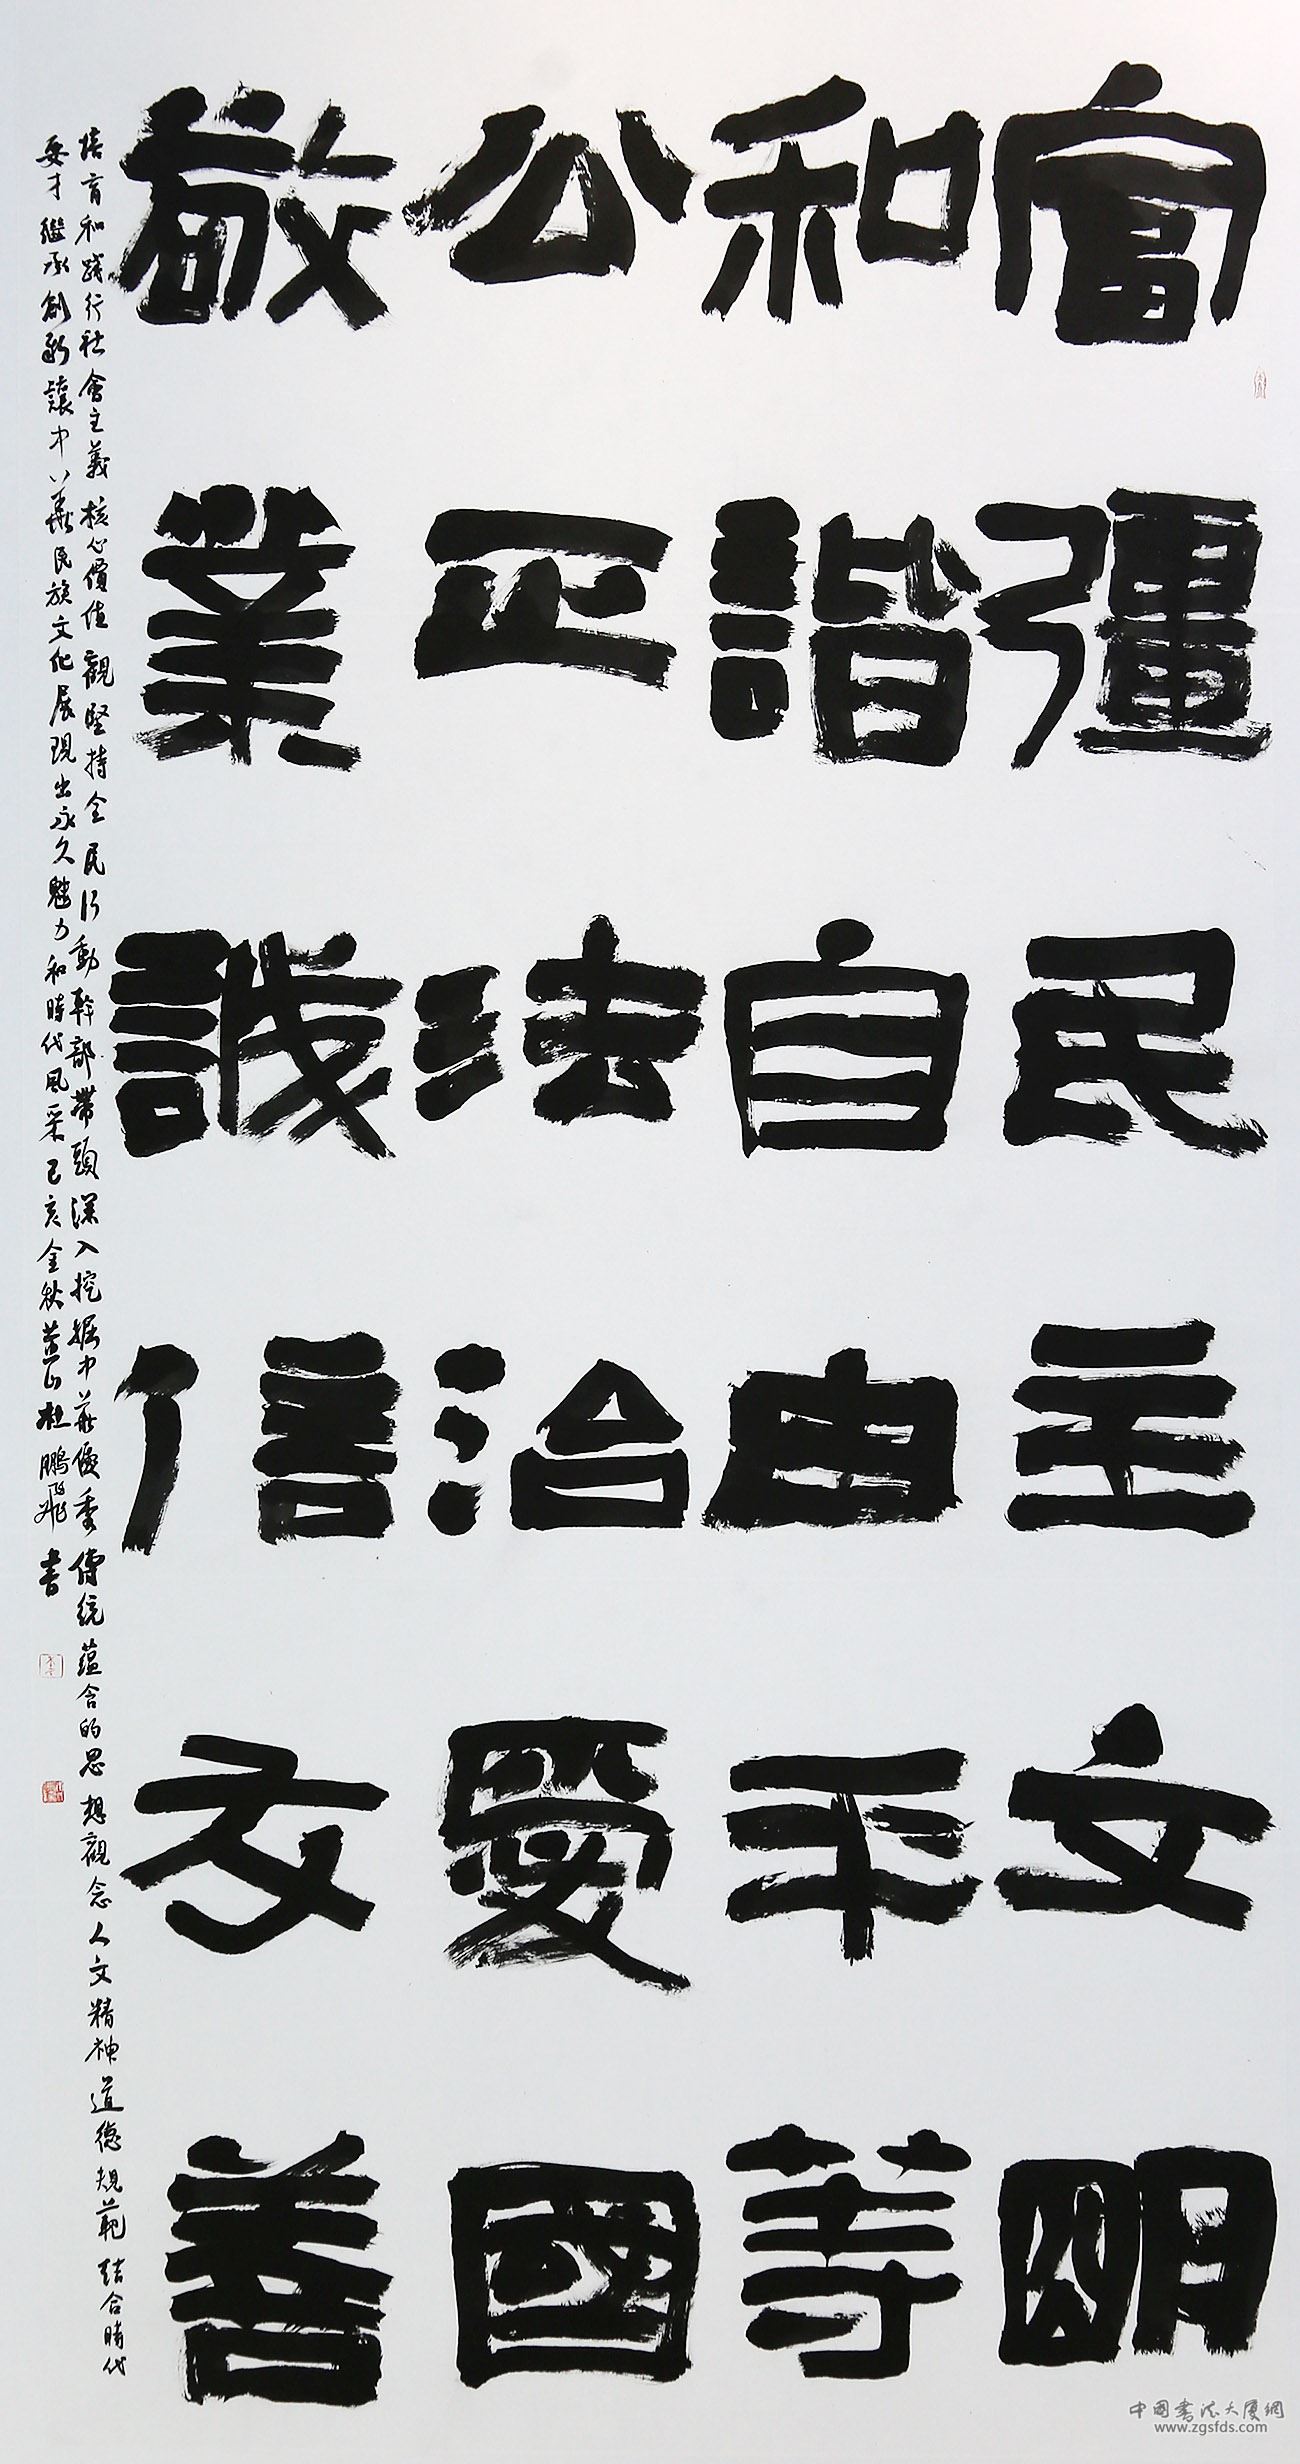 富彊民主文明
和諧自由平等
公正法治愛國
敬業誠信友善
培育和踐行社會主義核心價值觀堅持全民行動幹部帶頭深入挖掘中華優秀傳統蘊含的思想觀念人文精神道德規範結合時代
要求繼承創新讓中華民族文化展現出永久魅力和時代風采己亥金秋黃山杜鵬飛書
中國書法大廈網
www.zgsfds.com